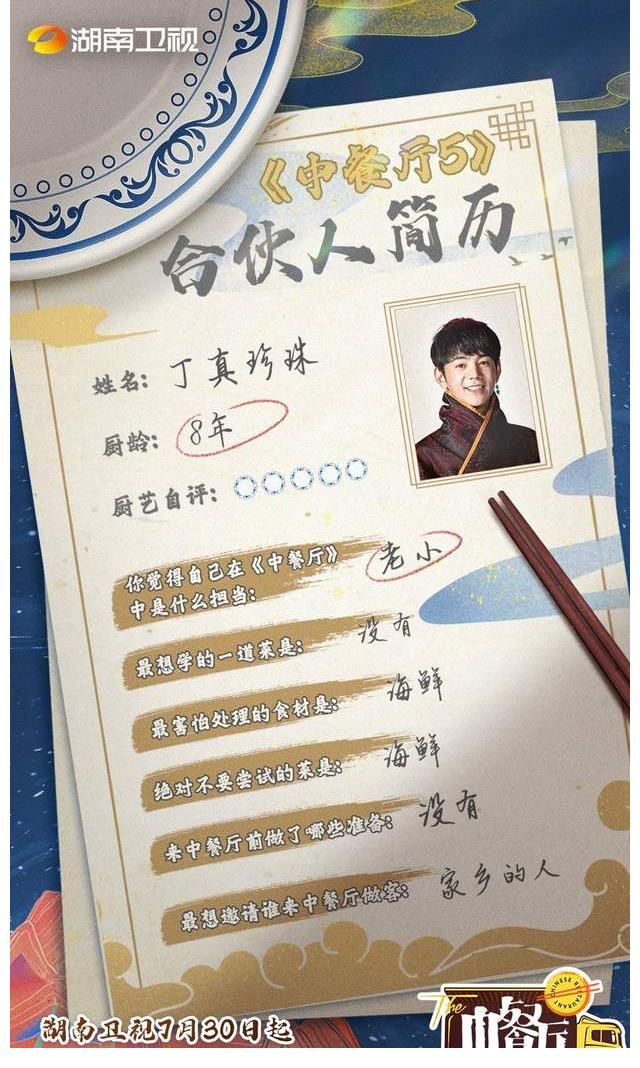 湖南卫视
《中餐厅5》
合伙人简历
姓名: 丁真珍珠
厨龄: 8年
厨艺自评:
你觉得自己在《中餐厅》
中是什么担当: 老小
最想学的一道菜是: 没有
最害怕处理的食材是: 海鲜
绝对不要尝试的菜是: 海鲜
来中餐厅前做了哪些准备: 没有
最想邀请谁来中餐厅做客: 家乡的人
湖南卫视7月30日起
The
CHINESE RESTAURANT
中餐厅